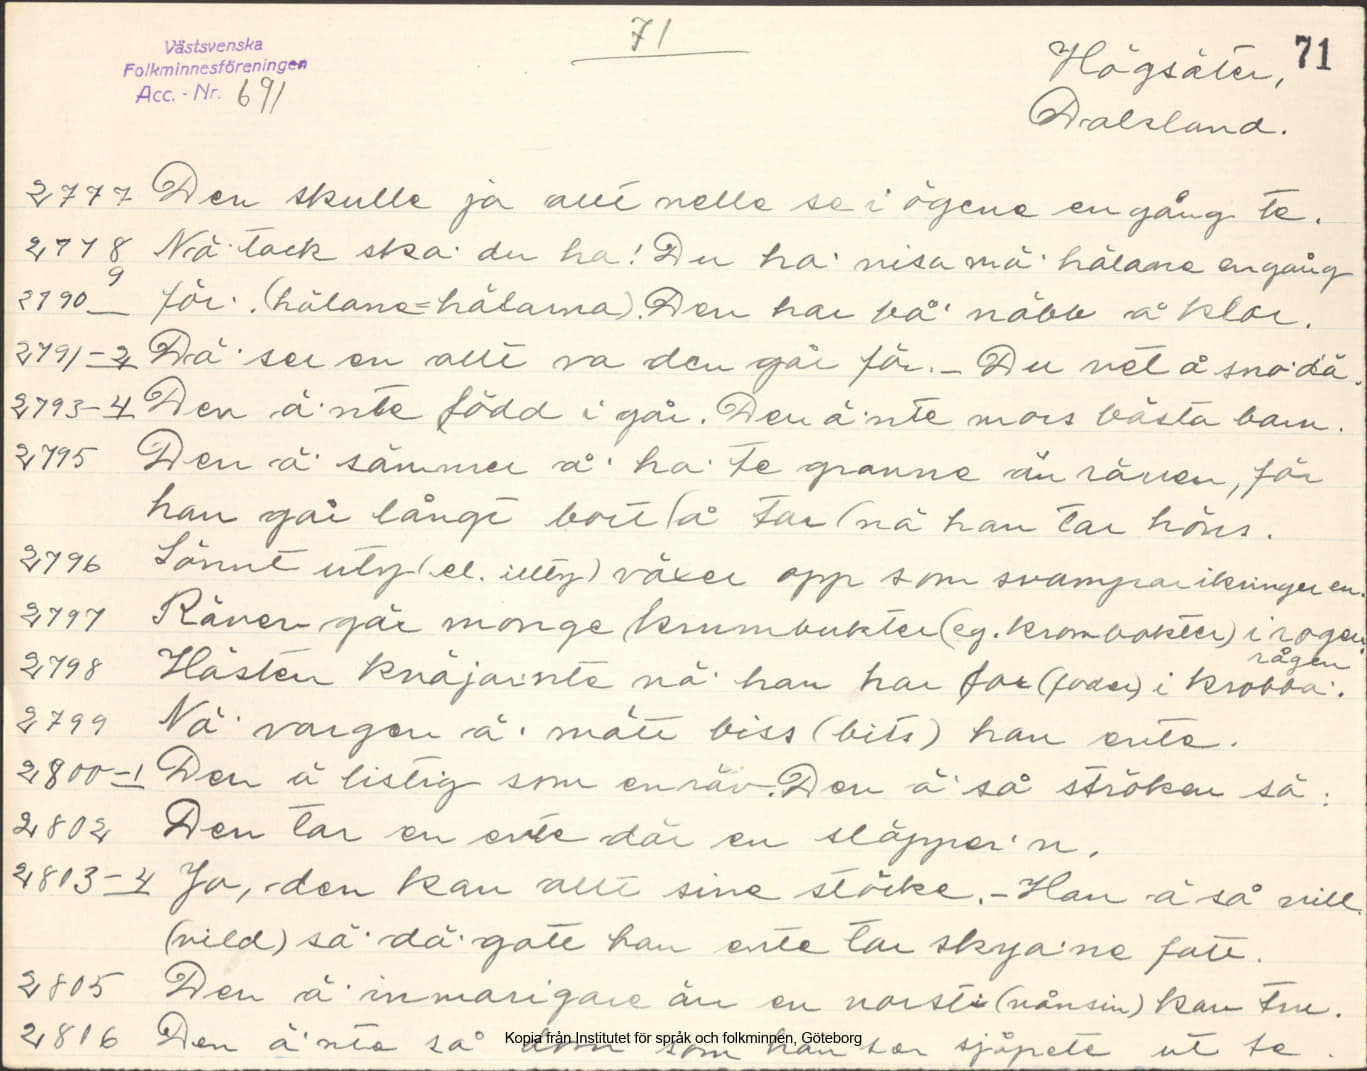 71
71
Västsvenska
Folkminnesföreningen
Acc. - Nr. 691
Högsäter,
Dalsland.
2777 Den skulle ja allt velle se i ögene en gång te.
2778 Nä tack ska' du ha! Du ha' visa mä' hälane en gång
9
2790 för. (hälane=hälarna). Den har bå' näbb å klor.
2791-2 Dä' ser en allt va den går för. - Du vet å sno dä.
2793-4 Den ä'nte född i går. Den ä'nte mors bästa barn.
2795 Den ä' sämmer å' ha' te granne än räven, för
han går långt bort (å tar (nä han tar höns.
2796 Sånnt uty (el. illty) växer opp som svampar ikringer en.
2797 Räven går monge krumbukter (eg. krombokter) i rogen
rågen
2798 Hästen knäjar'nte nä' han har for (foder) i krobba'.
2799 Nä' vargen ä' mätt biss (bits) han ente.
2800-1 Den ä listig som en räv. Den ä' så ströken så:
2802 Den tar en ente där en släpper'n.
2803-4 Ja, den kan allt sine stöcke. - Han ä så vill
(vild) så' dä' gott han ente tar skya'ne fatt.
2805 Den ä' inmarigare än en norsti (nånsin) kan tru.
2816 Den ä'nte så dom som han ser sjöpete ut te.
Kopia från Institutet för språk och folkminnen, Göteborg